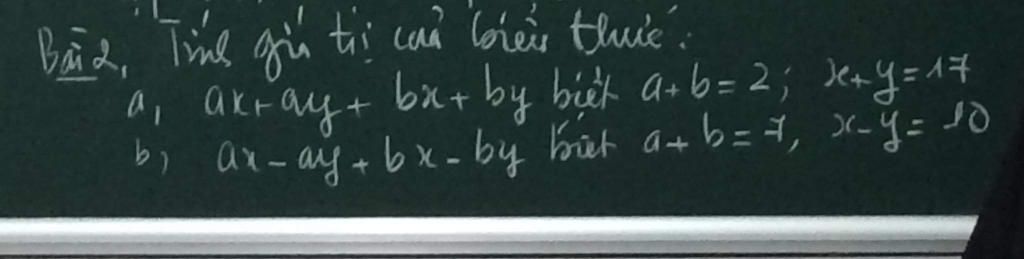 Bài 2, Tính giá trị của biểu thức:
a, ax+ay+ bx+ by biết a+b=2; x+y=17
b, ax-ay+bx-by biết a+b=7, x-y=10